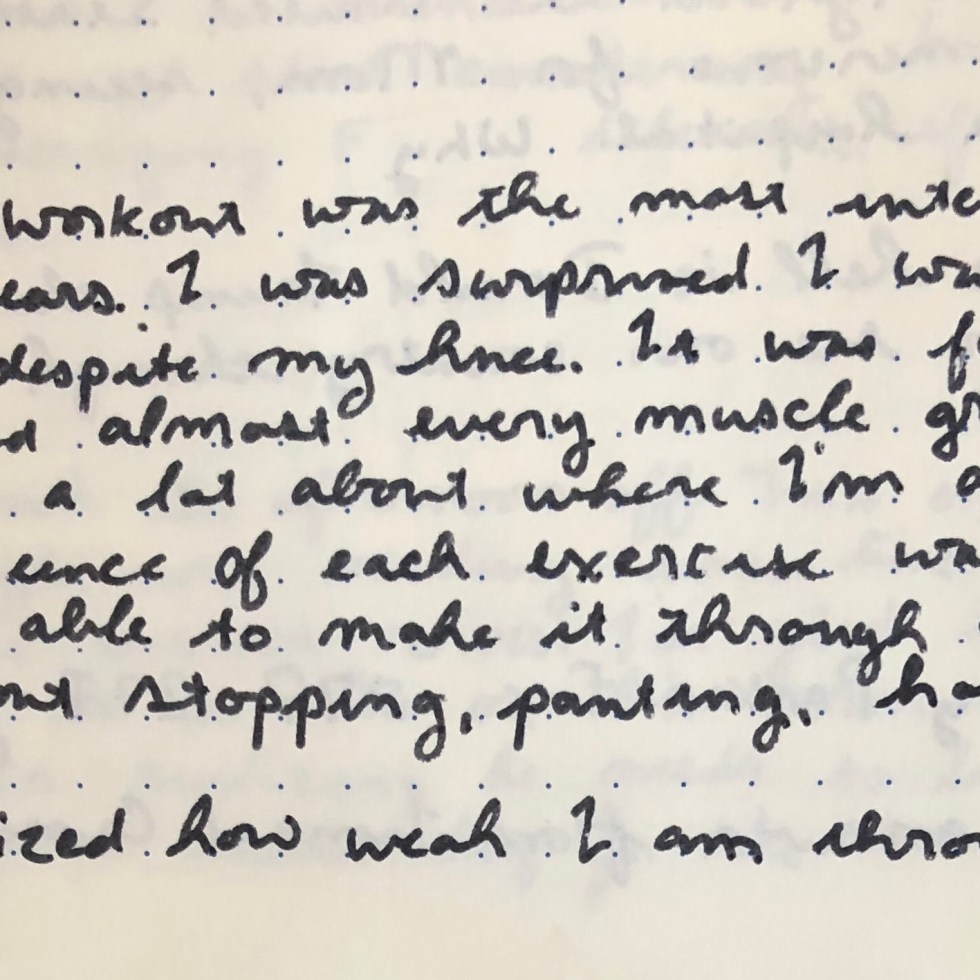 workout was the most inte
ears. I was surprised I wa
despite my knee. It was f
d almost every muscle gr
a lot about where I'm a
uence of each exercise wa
able to make it through
out stopping, panting, ha
ized how weak I am thro